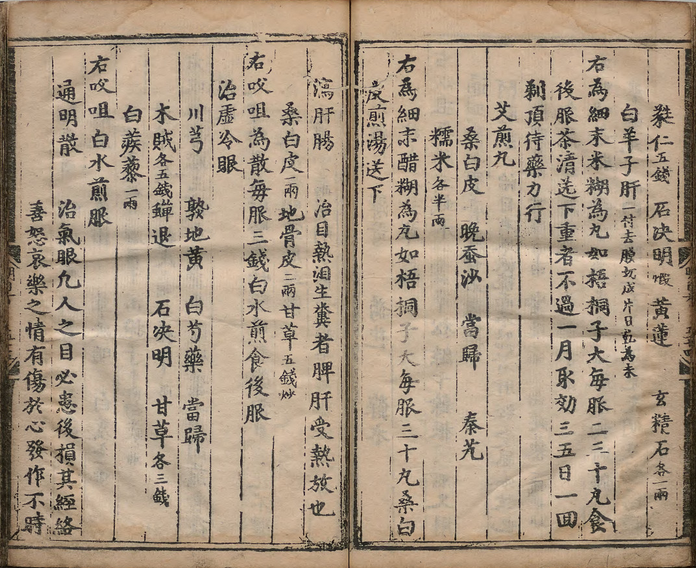 蕤仁五錢　石决明煅　黄蓮　玄精石各一兩
白羊子肝一付去膜切成片日乾為末
右為細末米糊為丸如梧桐子大每服二三十丸食
後服茶清送下重者不過一月取効三五日一回
剃頂待藥力行
艾煎丸
桑白皮　晚蚕沙　當歸　秦艽
糯米各半兩
右為細末醋糊為丸如梧桐子大每服三十丸桑白
皮煎湯送下
瀉肝腸　治目熱泪生糞者脾肝受熱放也
桑白皮一兩地骨皮二兩甘草五錢炒
右㕮咀為散每服三錢白水煎食後服
治虚冷眼
川芎　熟地黄　白芍藥　當歸
木賊各五錢蟬退　石决明　甘草各三錢
白蒺藜一兩
右㕮咀白水煎服
通明散　治氣眼凢人之目必患後損其經絡
喜怒哀樂之情有傷於心發作不時